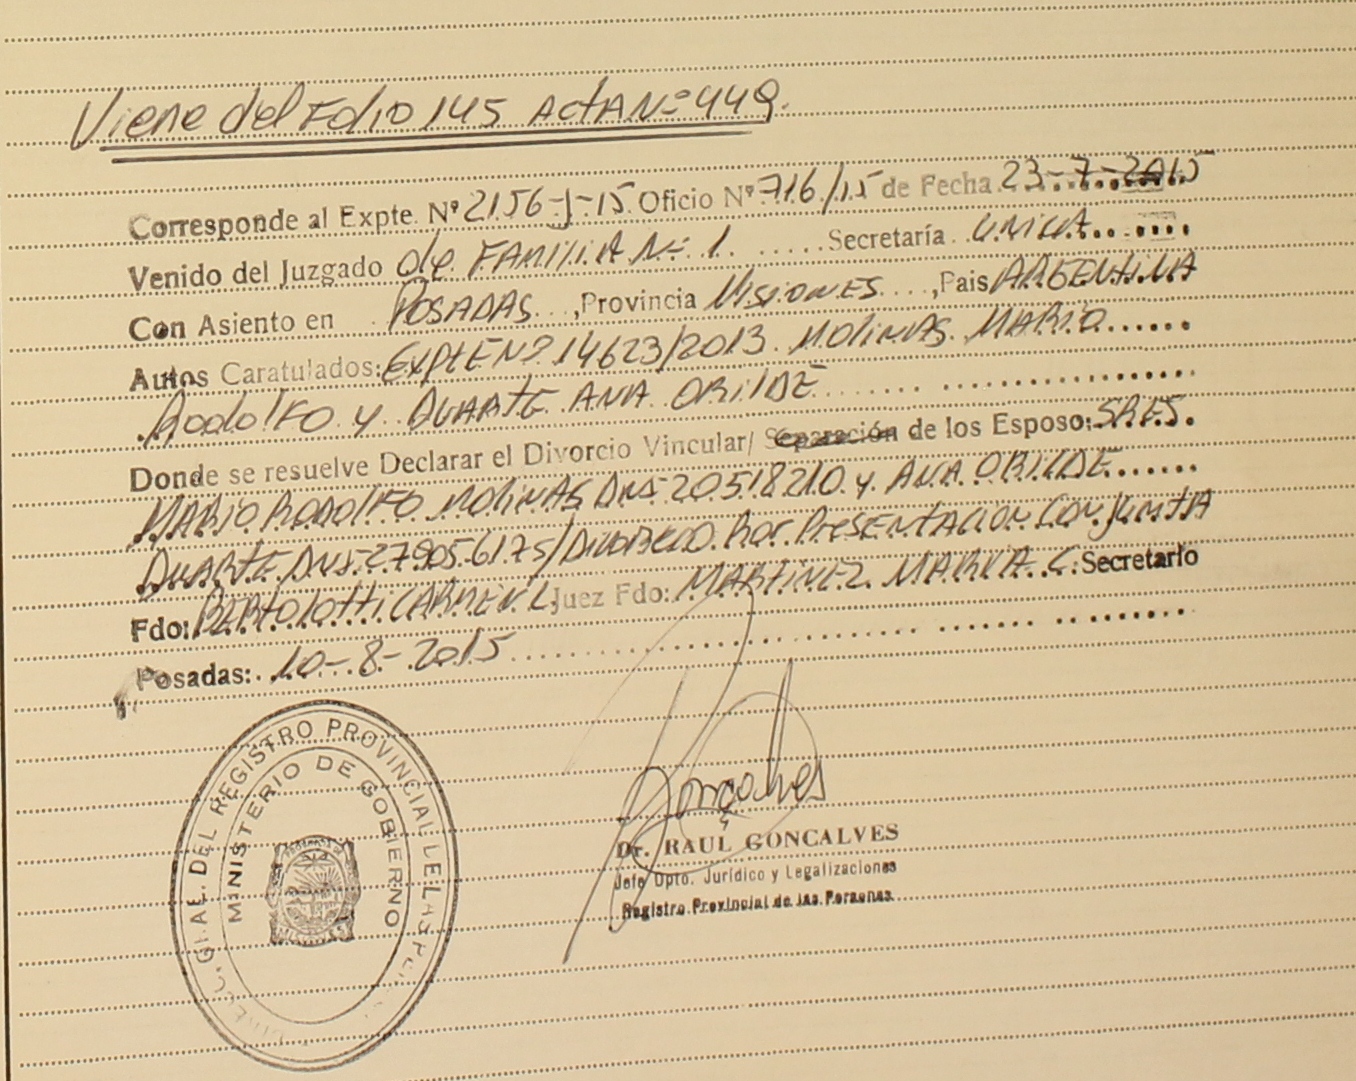 Viene del Folio 145 Acta Nº 449.
Corresponde al Expte. Nº 2156-J-15 Oficio Nº 716/15 de Fecha 23-7-2015
Venido del Juzgado de FAMILIA Nº 1. Secretaría UNICA
Con Asiento en POSADAS, Provincia Misiones, Pais ARGENTINA
Autos Caratulados: Expte Nº 14623/2013. MOLINAS MARIO
Rodolfo y DUARTE ANA ORILDE
Donde se resuelve Declarar el Divorcio Vincular/ Separación de los Esposo: SRES.
MARIO RODOLFO MOLINAS DNI 20518210 y ANA ORILDE
DUARTE DNI 27905617s/Divorcio Por Presentación Conjunta
Fdo: BERTOlotti CARMEN L Juez Fdo: MARTINEZ MARIA C. Secretario
Posadas: 10-8-2015
DIREC. GRAL. DEL REGISTRO PROVINCIAL DE LAS
MINISTERIO DE GOBIERNO
MISIONES
Gonçalves
Dr. RAUL GONCALVES
Jefe Dpto. Jurídico y Legalizaciones
Registro Provincial de las Personas